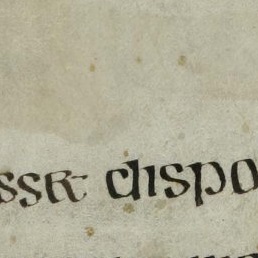 sset dispo